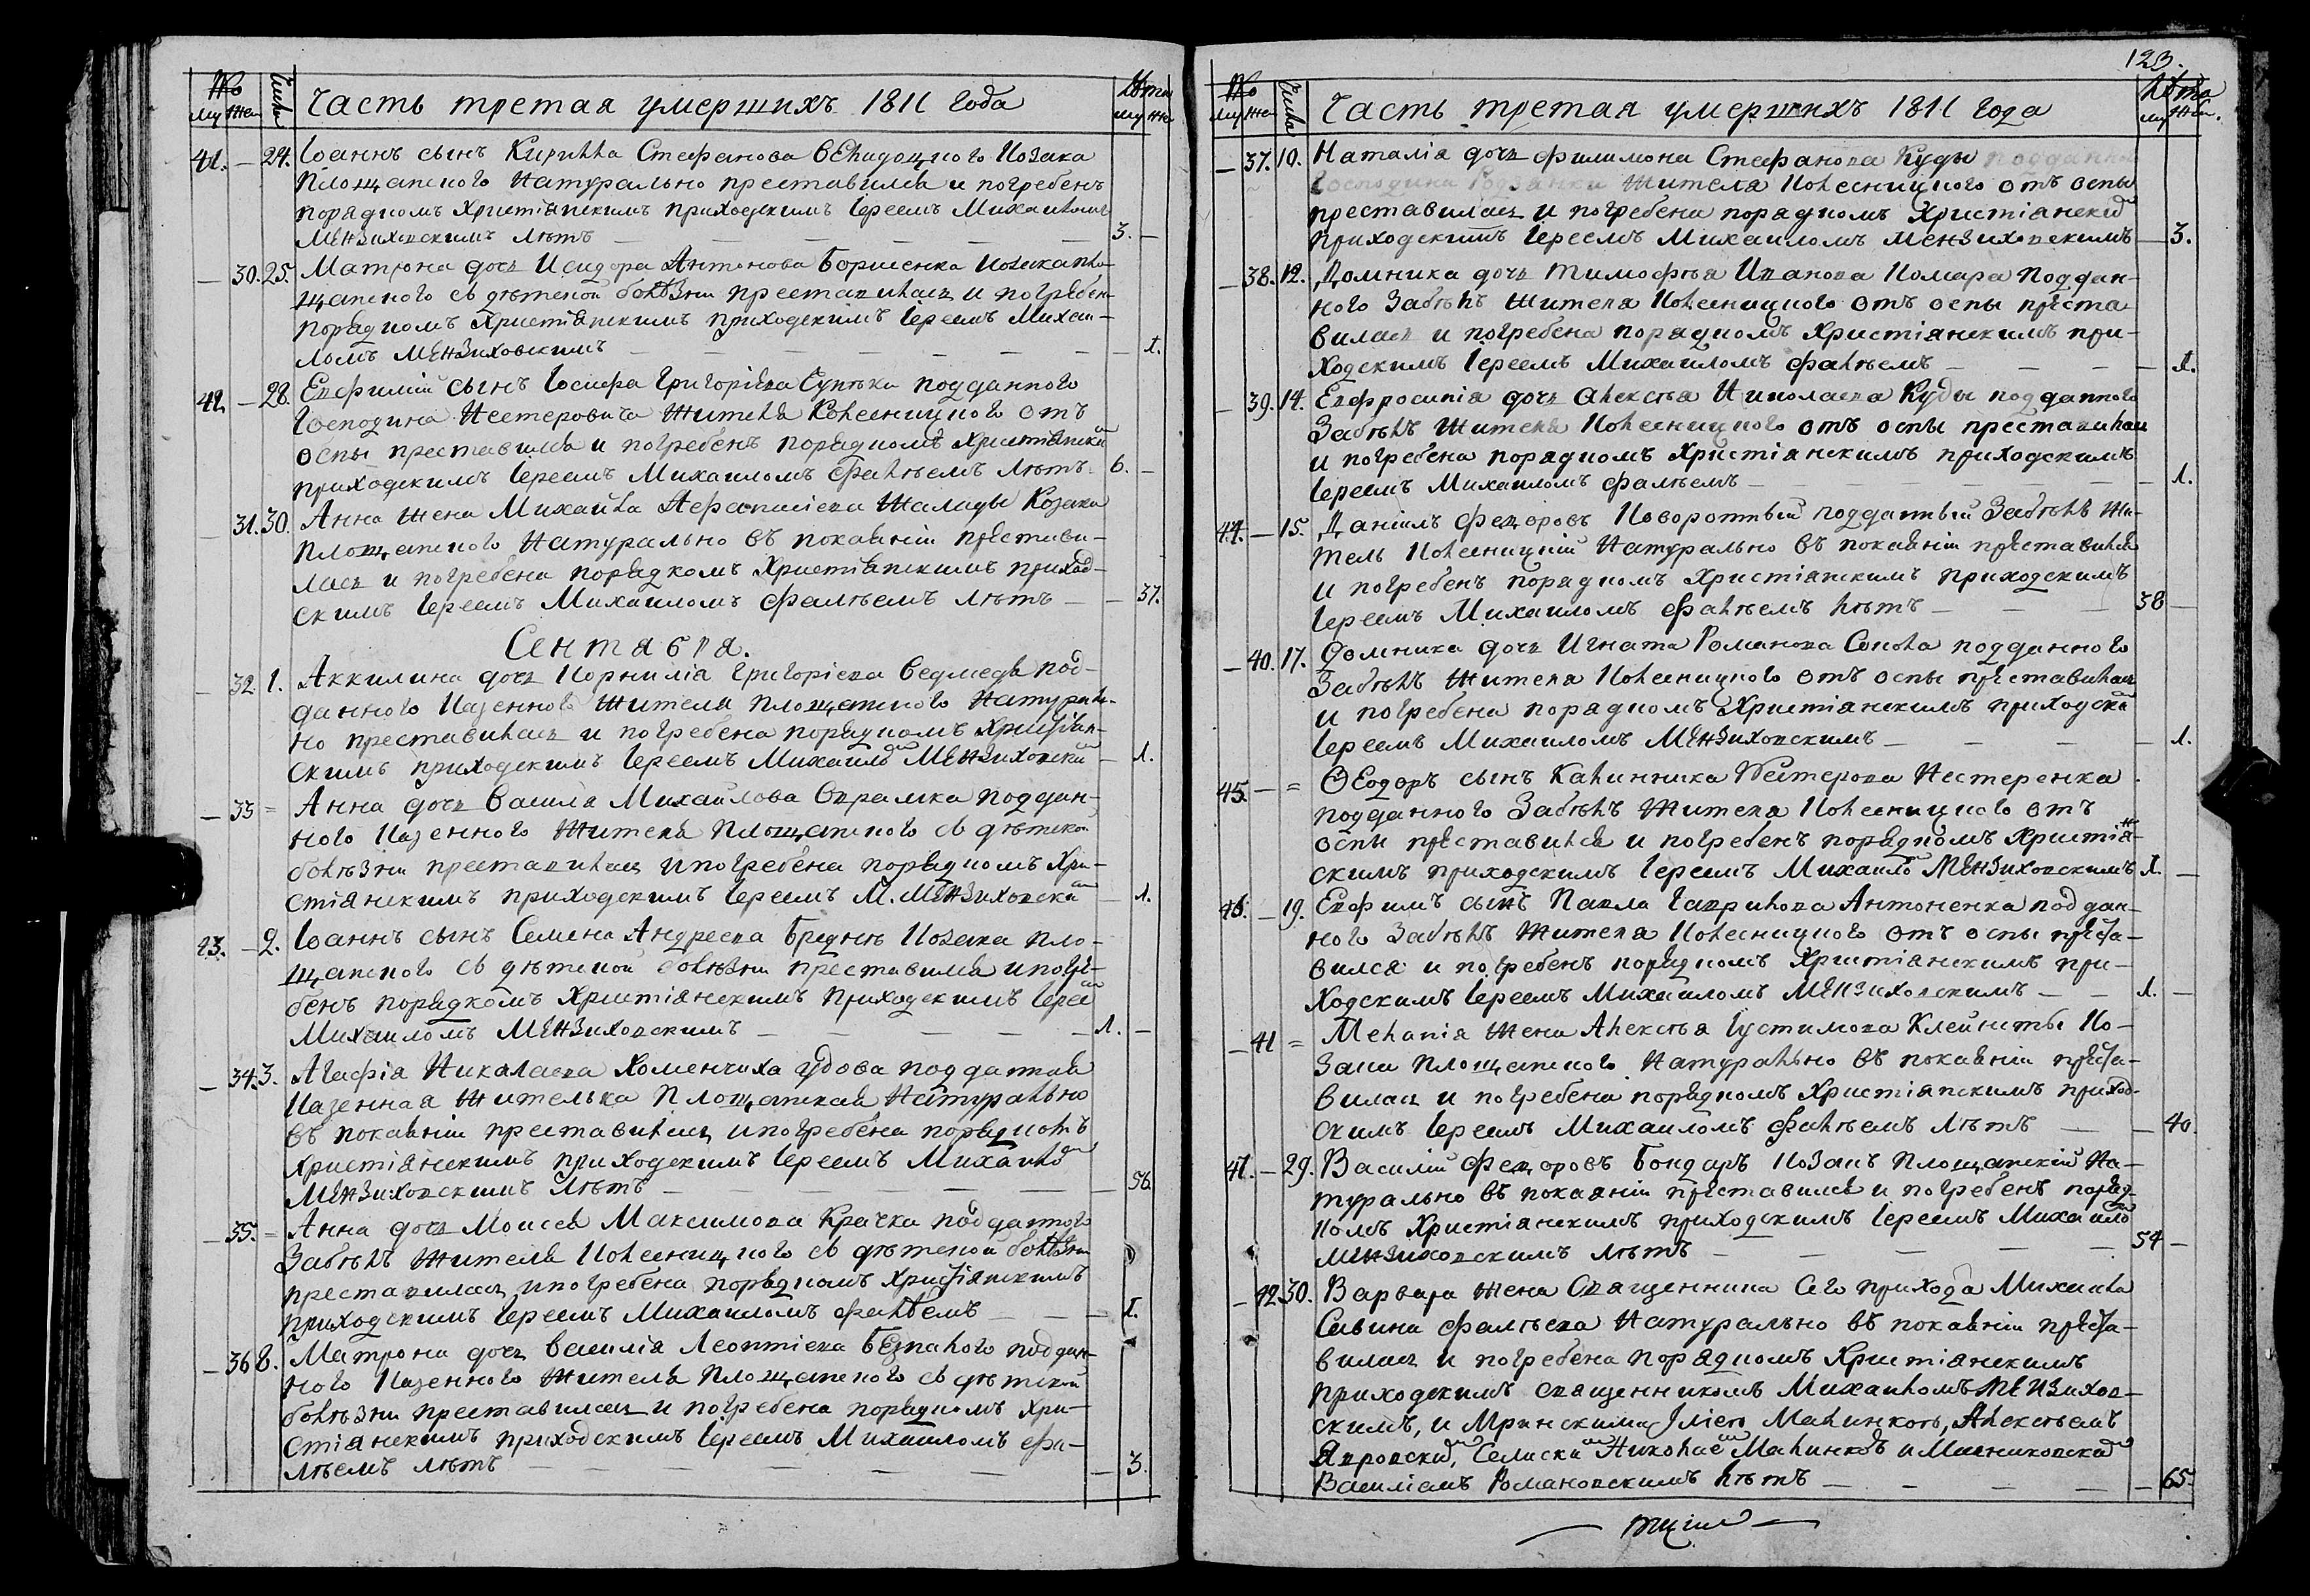 № Числа Часть третая умершихъ 1811 года Лѣта
му жен му же
41. — 24. Іоаннъ сынъ Кирилла Стефанова козака
Площанского натурально преставился и погребенъ
порядкомъ христіянскимъ приходскимъ Іереемъ Михаиломъ
Мензиховскимъ лѣтъ — 3. —
— 30. 25. Матрона дочь Исидора Антонова Борисенка козака пло-
щанского съ дѣтской болѣзни преставилась и погребен-
порядкомъ христіянскимъ приходскимъ Іереемъ Михаи-
ломъ Мензиховскимъ — 1.
42. — 28. Евфимій сынъ Іосифа Григоріева подданного
Господина Нестеровича жителя Колесницкого отъ
оспы преставился и погребенъ порядкомъ христіянски
приходскимъ Іереемъ Михаиломъ Фалѣемъ лѣтъ 6. —
— 31. 30. Анна жена Михайла Афанасіева Шаляды Козака
площанского натурально въ покаяніи престави-
лась и погребена порядкомъ христіянскимъ приход-
скимъ Іереемъ Михаиломъ Фалѣемъ лѣтъ — 37.
Сентября.
— 32. 1. Аккилина дочь Корнилія Григоріева Ведмедя под-
данного казенного жителя площанского натураль-
но преставилась и погребена порядкомъ христіян-
скимъ приходскимъ Іереемъ Михаило Мензиховски — 1.
— 33 = Анна дочь Василя Михайлова Овраменка поддан-
ного казенного жителя площанского съ дѣтской
болѣзни преставилась и погребена порядкомъ хри-
стіянскимъ приходскимъ Іереемъ М. Мензиховски — 1.
43. — 2. Іоаннъ сынъ Семена Андреева Бреднѣ козака пло-
щанского съ дѣтской болѣзни преставился и погре-
бенъ порядкомъ христіянскимъ приходскимъ Іерее
Михаиломъ Мензиховскимъ — 1. —
— 34. 3. Агафія Николаева Хоменчиха удова подданная
казенная жителька Площанская натурально
въ покаяніи преставилась и погребена порядкомъ
христіянскимъ приходскимъ Іереемъ Михаило
Мензиховскимъ лѣтъ — 56.
— 35. = Анна дочь Моисея Максимова Крачка подданного
Забѣлъ жителя Колесницкого съ дѣтской болѣзни
преставилась и погребена порядкомъ христіянскимъ
приходскимъ Іереемъ Михаиломъ Фалѣемъ — 1.
— 36 8. Матрона дочь Василія Леонтіева Безпалого поддан-
ного казенного жителя площанского съ дѣтской
болѣзни преставилась и погребена порядкомъ хри-
стіянскимъ приходскимъ Іереемъ Михаиломъ Фа-
лѣемъ лѣтъ — 3.
123.
№ Числа Часть третая умершихъ 1811 года Лѣта
му жен му жен.
— 37. 10. Наталія дочь Филимона Стефанова Куды подданного
Господина Родзянки жителя Колесницкого отъ оспы
преставилась и погребена порядкомъ христіянски
приходскимъ Іереемъ Михаиломъ Мензиховскимъ — 3.
— 38. 12. Домника дочь Тимофѣя Иванова Комара поддан-
ного Забѣлъ жителя Колесницкого отъ оспы преста
вилась и погребена порядкомъ христіянскимъ при-
ходскимъ Іереемъ Михаиломъ Фалѣемъ — 1.
— 39. 14. Евфросинія дочь Алексѣя Николаева Куды подданного
Забѣлъ жителя Колесницкого отъ оспы преставилась
и погребена порядкомъ христіянскимъ приходскимъ
Іереемъ Михаиломъ Фалѣемъ — 1.
44. — 15. Даніилъ Федоровъ Коворотный подданный Забѣлъ жи-
тель Колесницкій натурально въ покаяніи преставился
и погребенъ порядкомъ христіянскимъ приходскимъ
Іереемъ Михаиломъ Фалѣемъ лѣтъ — 38 —
— 40. 17. Домника дочь Игната Романова Сокола подданного
Забѣлъ жителя Колесницкого отъ оспы преставилась
и погребена порядкомъ христіянскимъ приходски
Іереемъ Михаиломъ Мензиховскимъ — 1.
45. — = Ѳеодоръ сынъ Калинника Нестерова Нестеренка
подданного Забѣлъ жителя Колесницкого отъ
оспы преставился и погребенъ порядкомъ христіян-
скимъ приходскимъ Іереемъ Михаило Мензиховскимъ 1. —
46. — 19. Евфимъ сынъ Павла Гаврилова Антоненка поддан-
ного Забѣлъ жителя Колесницкого отъ оспы преста-
вился и погребенъ порядкомъ христіянскимъ при-
ходскимъ Іереемъ Михаиломъ Мензиховскимъ — 1. —
— 41 = Меланія жена Алексѣя Іустимова ко-
зака площанского натурально въ покаяніи преста-
вилась и погребена порядкомъ христіянскимъ приход-
скимъ Іереемъ Михаиломъ Фалѣемъ лѣтъ — 40.
47. — 29. Василій Федоровъ Бондаръ козакъ площанскій на-
турально въ покаяніи преставился и погребенъ поряд-
комъ христіянскимъ приходскимъ Іереемъ Михаило
Мензиховскимъ лѣтъ — 54 —
— 42 30. Варвара жена Священника сего прихода Михаила
Савина Фалѣева натурально въ покаяніи преста-
вилась и погребена порядкомъ христіянскимъ
приходскимъ священникомъ Михаиломъ Мензихов-
скимъ, и Алексѣемъ
Яновски, Николае и
Василіемъ Романовскимъ лѣтъ — 65.